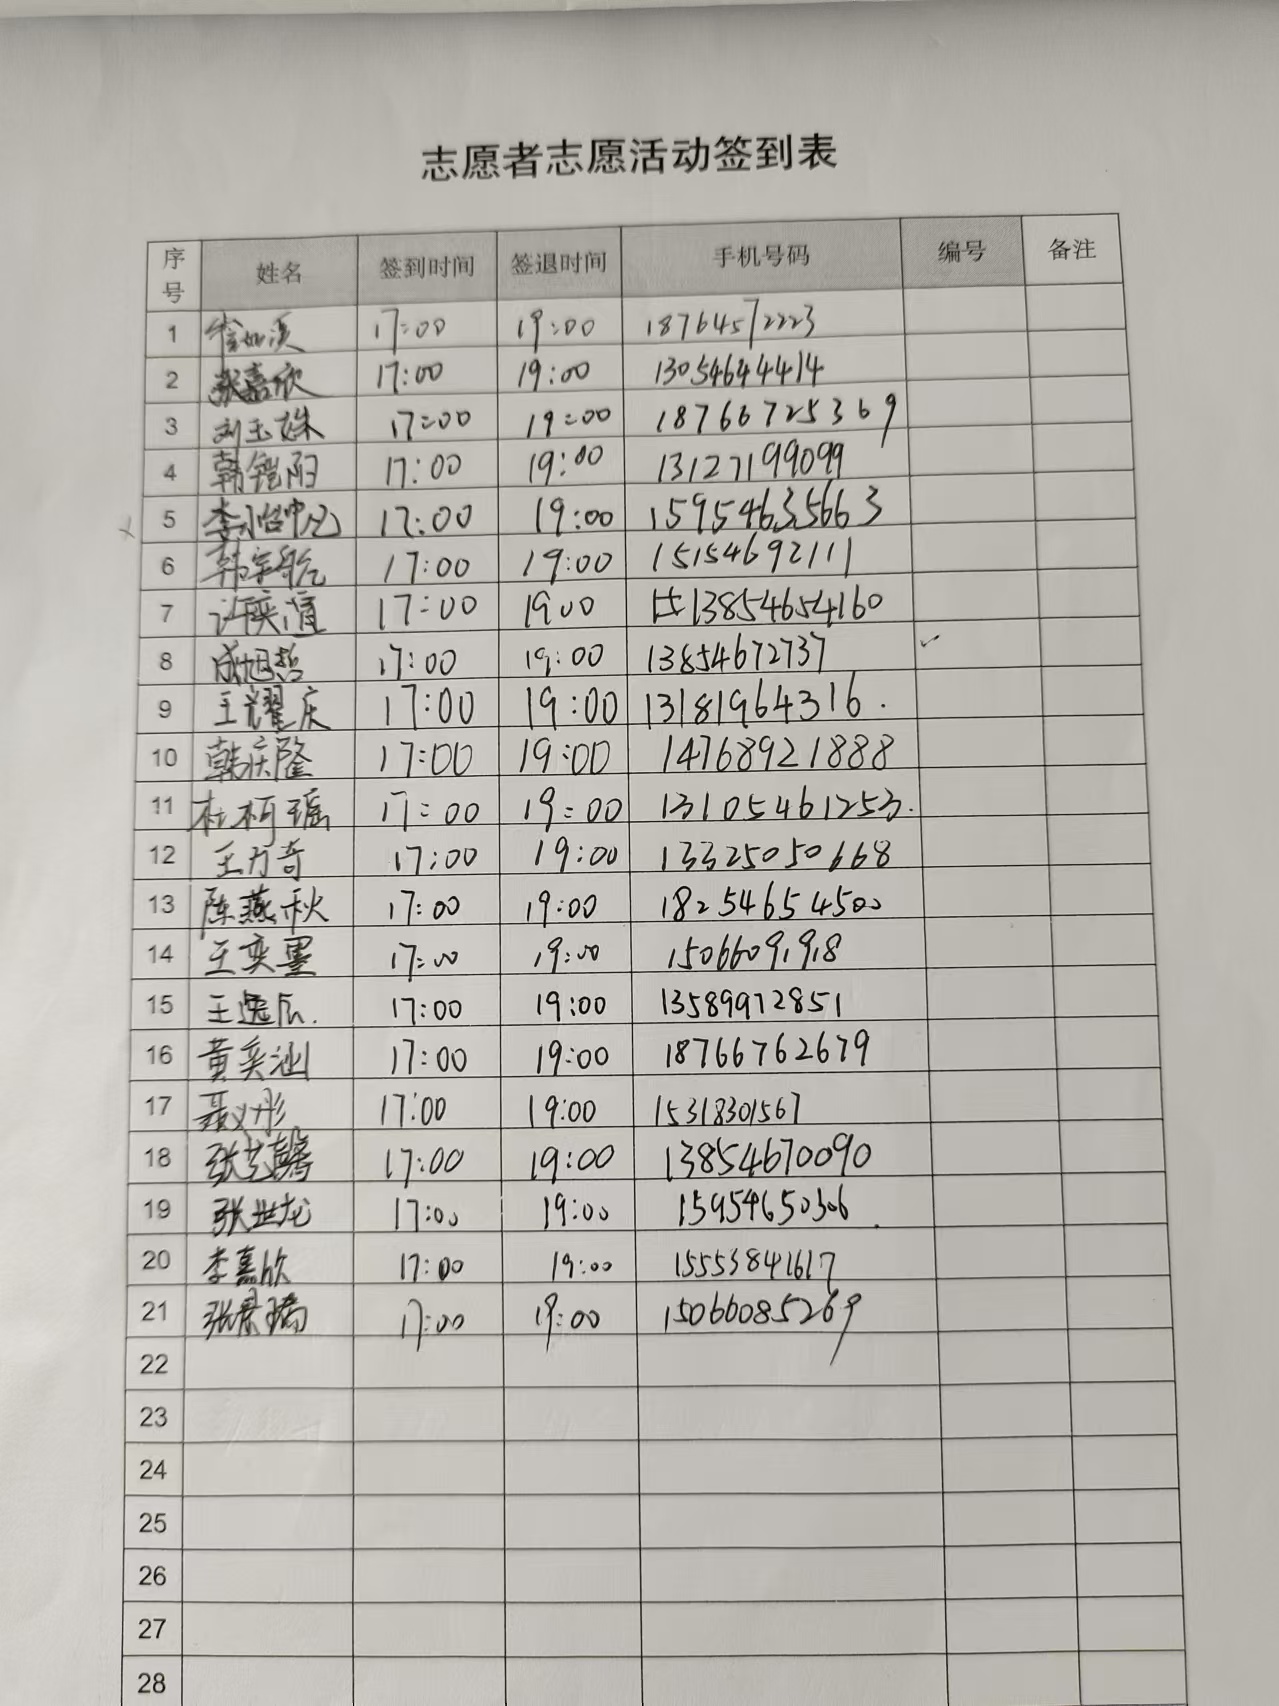 志愿者志愿活动签到表
序号 姓名 签到时间 签退时间 手机号码 编号 备注
1 17:00 19:00 18764572223
2 张嘉欣 17:00 19:00 13054644414
3 刘玉姝 17:00 19:00 18766725369
4 韩铠阳 17:00 19:00 13127199099
5 17:00 19:00 15954635663
6 17:00 19:00 15154692111
7 许奕漕 17:00 19:00 13854654160
8 成旭哲 17:00 19:00 13854672737 ✓
9 王耀庆 17:00 19:00 13181964316.
10 韩庆隆 17:00 19:00 14768921888
11 杜柯瑶 17:00 19:00 13105461253.
12 王力奇 17:00 19:00 13325050668
13 陈燕秋 17:00 19:00 18254654500
14 王奕墨 17:00 19:00 15066091918
15 王逸辰. 17:00 19:00 13589972851
16 黄奕汕 17:00 19:00 18766762679
17 聂义彤 17:00 19:00 15318301567
18 张艺馨 17:00 19:00 13854670090
19 张世龙 17:00 19:00 15954650306.
20 李嘉欣 17:00 19:00 15553841617
21 张景瑞 17:00 19:00 15066085269
22
23
24
25
26
27
28